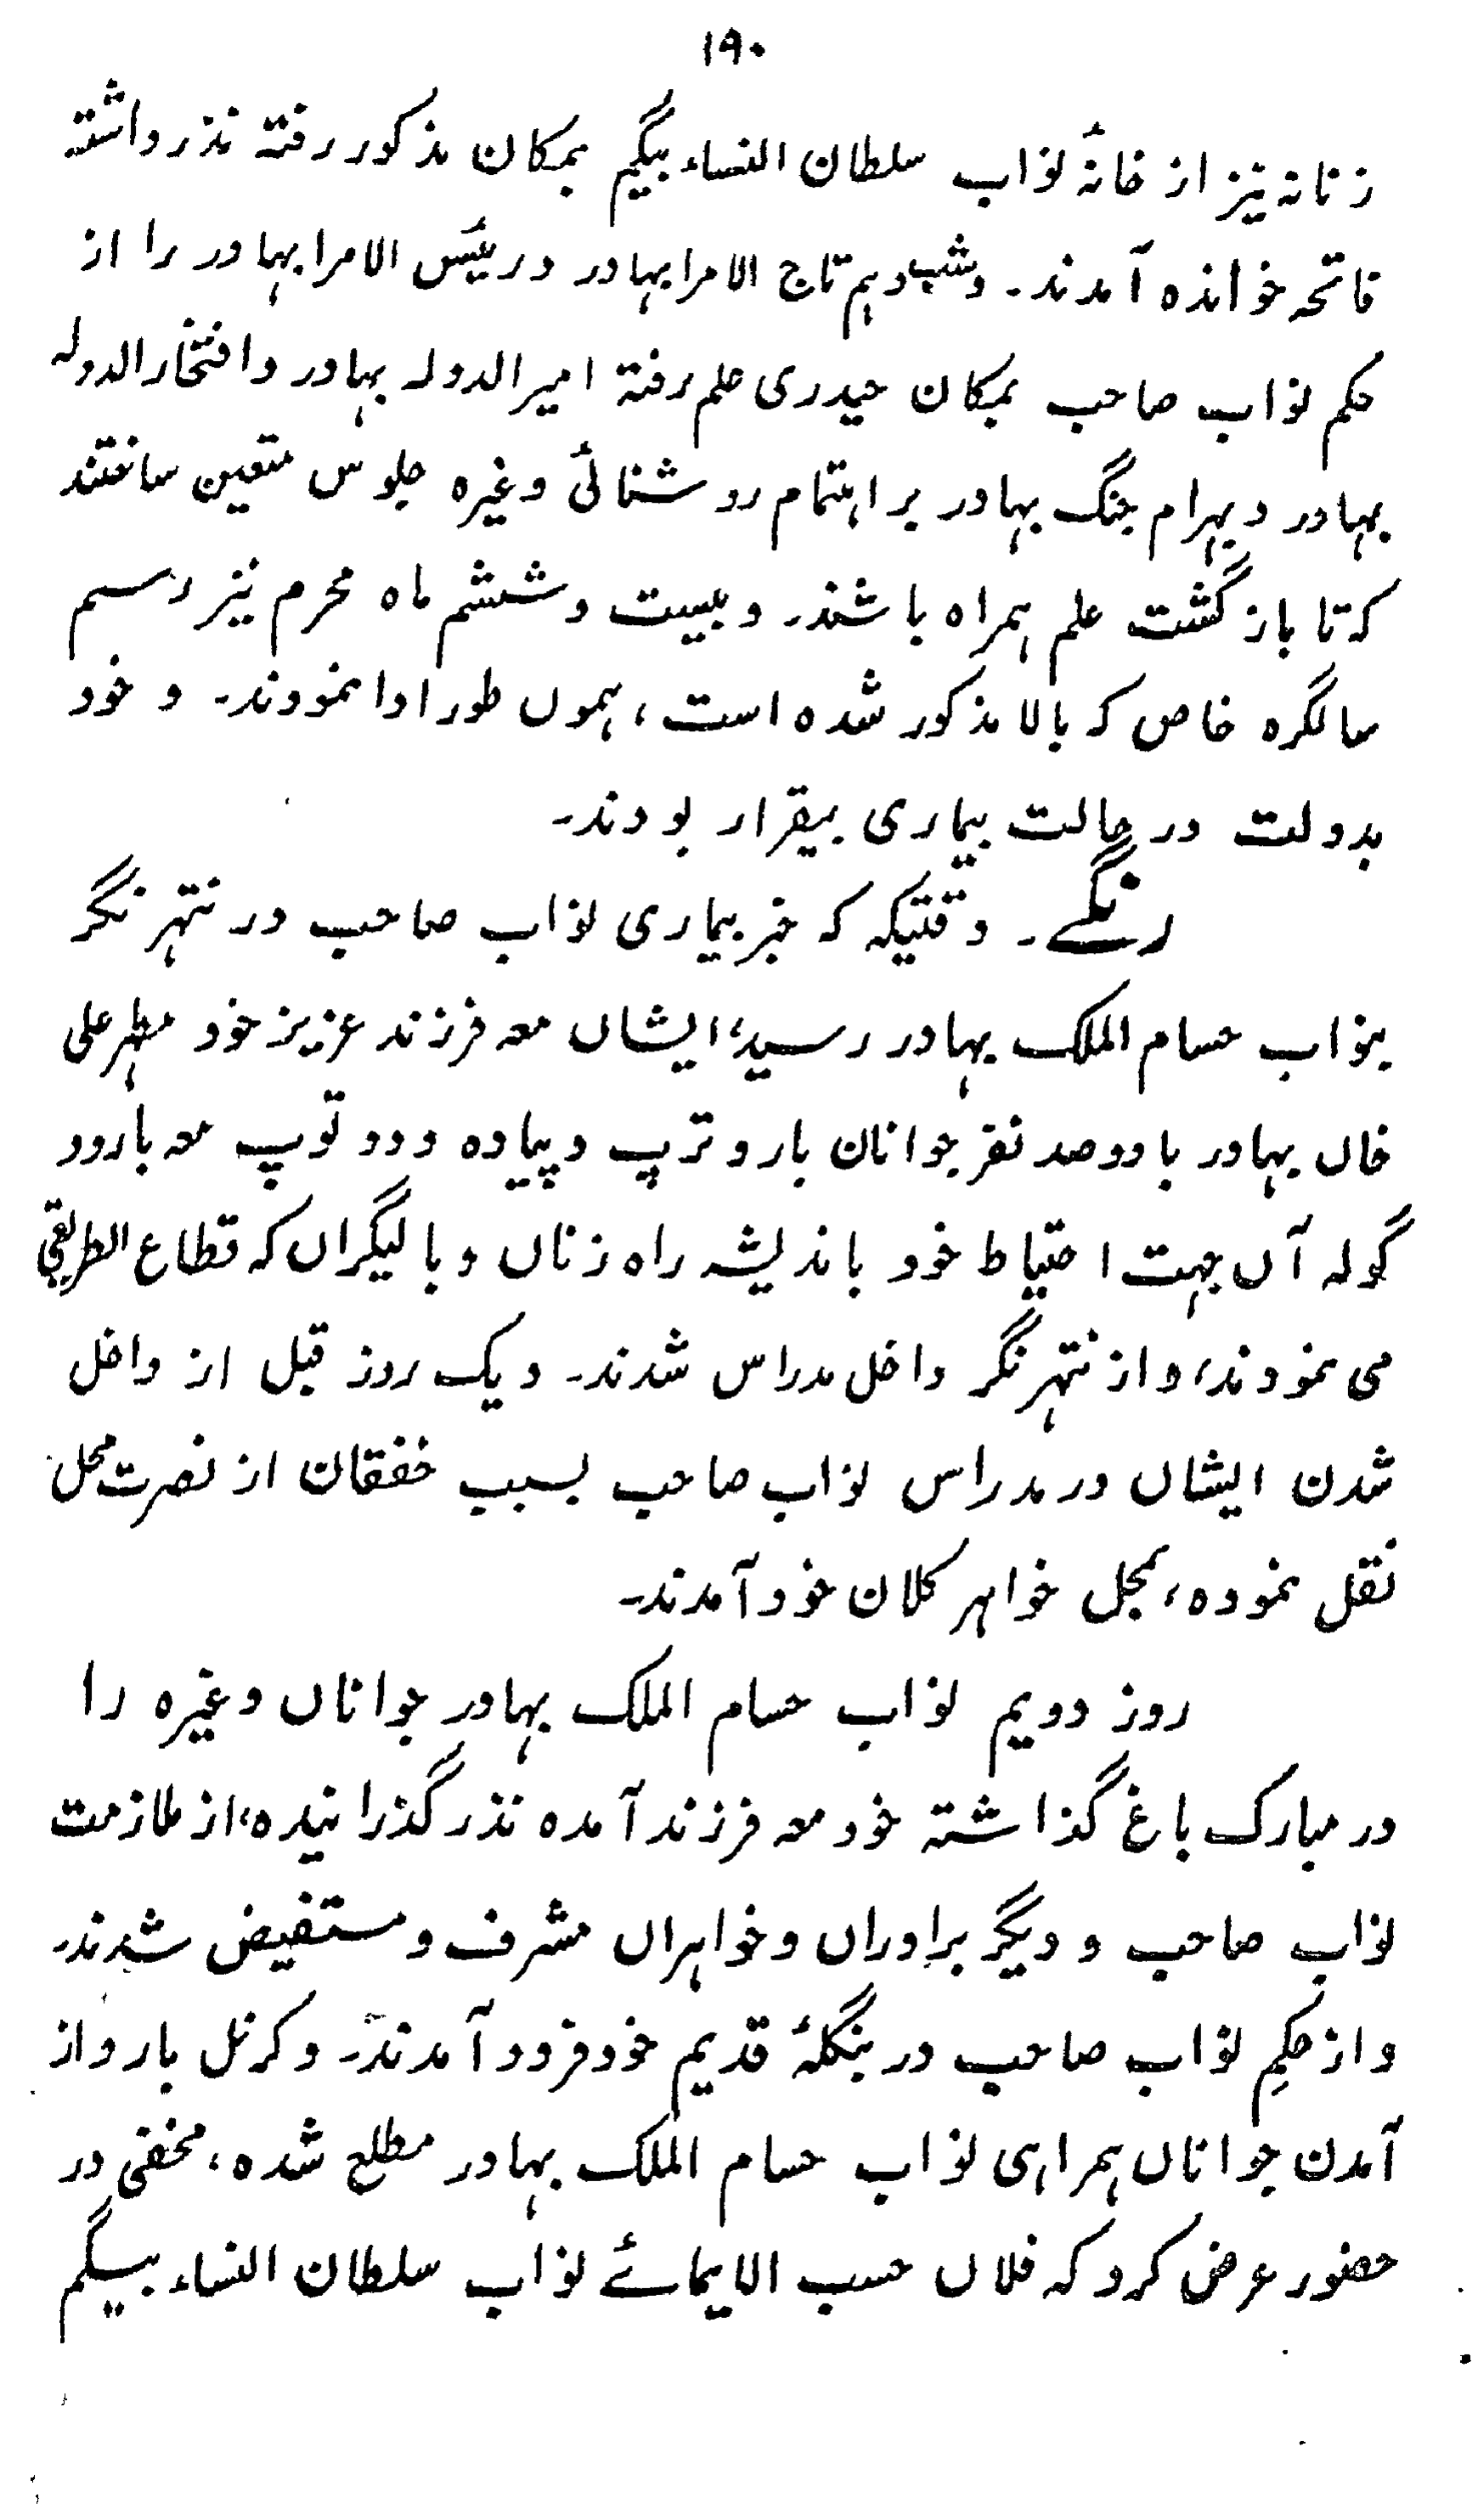 ۱۹۰
زنانہ نیز از خانۂ نواب سلطان النساء بیگم بمکان مذکور رفتہ نذر داشتہ
فاتحہ خواندہ آمدند۔ وشب دہم تاج الامرا بہادر و رئیس الامرا بہادر را از
حکم نواب صاحب بمکان حیدری علم رفتہ امیر الدولہ بہادر و افتخار الدولہ
بہادر و بہرام جنگ بہادر بر اہتمام روشنائی وغیرہ جلوس متعین ساختند
کہ تا بازگشت علم ہمراہ باشند۔ و بیست و ششم ماہ محرم نیز رسم
سالگرہ خاص کہ بالا مذکور شدہ است، ہموں طور ادا نمودند۔ و خود
بدولت در حالت بیماری بیقرار بودند۔
رنگے۔ وقتیکہ کہ خبر بیماری نواب صاحب در نتہر نگر
بنواب حسام الملک بہادر رسید، ایشاں معہ فرزند عزیز خود مظہر علی
خاں بہادر با دو صد نفر جوانان بار و ترپ و پیادہ و دو توپ معہ بارود
گولہ آں جہت احتیاط خود باندیشہ راہ زناں و بالیگراں کہ قطاع الطریقی
می نمودند، و از نتہر نگر داخل مدراس شدند۔ و یک روز قبل از داخل
شدن ایشاں در مدراس نواب صاحب بسبب خفقان از نصرت محل
نقل نمودہ، بمحل خواہر کلان خود آمدند۔
روز دویم نواب حسام الملک بہادر جواناں وغیرہ را
در مبارک باغ گذاشتہ خود معہ فرزند آمدہ نذر گذرانیدہ، از ملازمت
نواب صاحب و دیگر برادراں و خواہراں مشرف و مستفیض شدند۔
و از حکمِ نواب صاحب در بنگلۂ قدیم خود فرود آمدند۔ و کرنل بار و از
آمدن جواناں ہمراہی نواب حسام الملک بہادر مطلع شدہ، مخفی در
حضور عرض کرد کہ فلاں حسب الایمائے نواب سلطان النساء بیگم